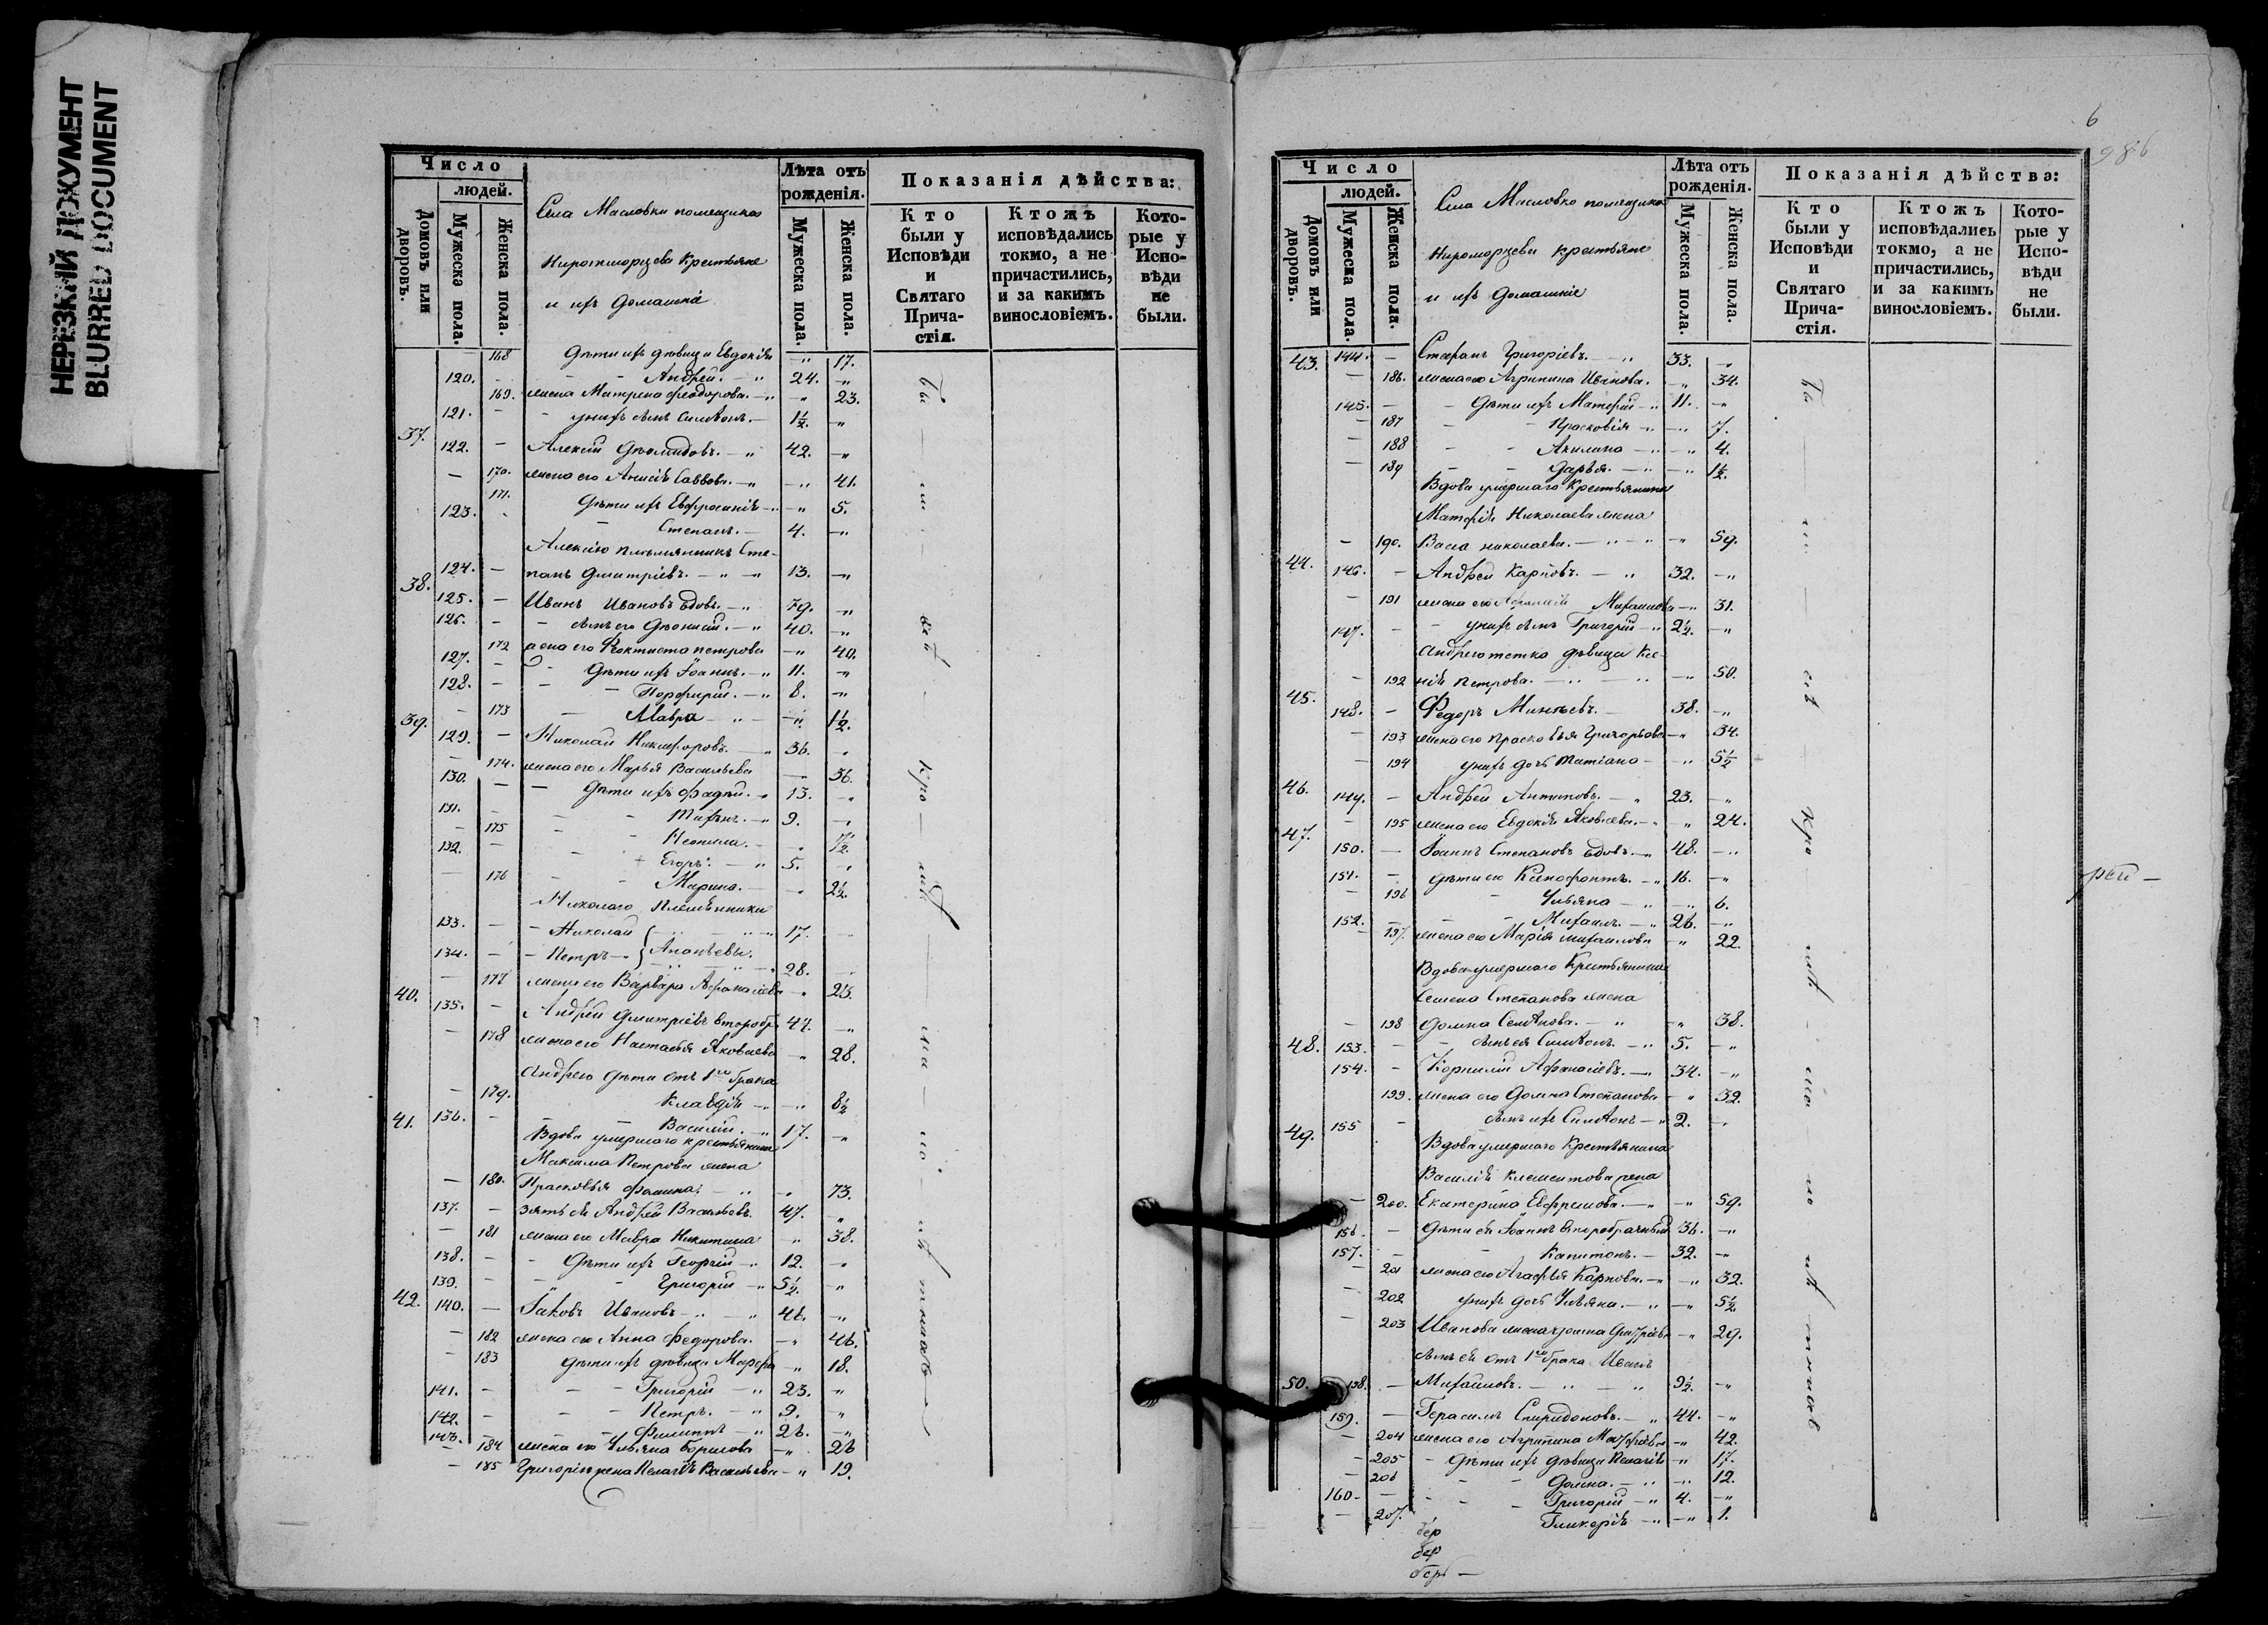 НЕРЕЗКИЙ ДОКУМЕНТ
BLURRED DOCUMENT
Число
людей.
Домовъ или дворовъ.
Мужеска пола.
Женска пола.
Села Масловки помещика
крестьяне
и ихъ домашніе
Лѣта отъ рожденія.
Мужеска пола.
Женска пола.
Показанія дѣйства:
Кто были у Исповѣди и Святаго Прича-стія.
Ктожъ исповѣдались токмо, а не причастились, и за какимъ винословіемъ.
Кото-рые у Испо-вѣди не были.
168 Дѣти ихъ дѣвица Евдокія —" 17.
120. — Андрей. —" 24. —"
169. жена Матрена Феодорова. —" —" 23.
121. — у нихъ сынъ Симеонъ. — 1½. —"
37. 122. — Алексій Діомидовъ. —" 42. —"
— 170. жена его Анисія Саввова. —" —" 41.
171. Дѣти ихъ Евфросинія —" —" 5.
123. Степанъ. — 4. —"
Алексію племянникъ Сте-
124. — панъ Дмитріевъ. —" —" 13. —"
38. 125. — Иванъ Ивановъ вдовъ. —" 79. —"
126. — сынъ его Діонисій. —" 40. —"
172 жена его Феоктиста Петрова —" 40.
127. — Дѣти ихъ Іоаннъ. —" 11. —"
128. — Порфирій. —" 8. —"
— 173 Мавра —" —" 1½.
39. 129. — Николай Никифоровъ. —" 36. "
— 174. жена его Марья Васильева — 36.
130. — Дѣти ихъ Фадѣй. —" 13. —"
131. — —" 9. —"
— 175 Неонила. — " 7½
132. — Егоръ. —" 5. "
— 176 Марина. — " 2½.
Николаю племянники
133. — Николай —" 17. —
134. — Петръ —" Ананьевы. 28. —
— 177 жена его Варвара Афанасьева —" 25.
40. 135. — Андрей Дмитріевъ второбр. 47. —"
— 178 жена его Настасья Яковлева —" 28.
Андрею дѣти отъ 1го брака
— 179. Клавдія —" —" 8½
41. 136. — Василій. —" 17. —"
Вдова умершаго крестьянина
Максима Петрова жена
— 180. Прасковья Фомина. —" " 73.
137. — зять ея Андрей Васильевъ. 47. "
— 181 жена его Мавра Никитина " 38.
138. — Дѣти ихъ Георгій —" 12. "
139. — Григорій —" 5½. "
42. 140. — Іаковъ Ивановъ —" —" 46. —"
— 182 жена его Анна Федорова. —" 46.
— 183 Дѣти ихъ дѣвица Марфа " 18.
141. — Григорій —" 23. "
142. — Петръ. —" 9. "
143. — Филиппъ —" 26. —"
— 184 жена его Ульяна Борисова —" 26
— 185 Григорію жена Пелагія Васильева —" 19.
6
986
Число
людей.
Домовъ или дворовъ.
Мужеска пола.
Женска пола.
Села Масловки помещика
крестьяне
и ихъ домашніе
Лѣта отъ рожденія.
Мужеска пола.
Женска пола.
Показанія дѣйства:
Кто были у Исповѣди и Святаго Прича-стія.
Ктожъ исповѣдались токмо, а не причастились, и за какимъ винословіемъ.
Кото-рые у Испо-вѣди не были.
43. 144. — Стефанъ Григоріевъ. —" 33. —"
— 186. жена его Агрипина Иванова. —" 34.
145. — Дѣти ихъ Матфій —" 11. —"
— 187 Прасковія —" —" 7.
— 188 Акилина —" —" 4.
— 189 Дарья. —" —" 1½.
Вдова умершаго крестьянина
Матфія Николаева жена
— 190. Васса Николаева. —" —" —" 59.
44. 146. — Андрей Карповъ. —" 32. —"
— 191 жена его Михаилова —" 31.
147. — у нихъ сынъ Григорій —" 2½. —"
Андрею тетка дѣвица Ксе-
— 192 нія Петрова. —" —" —" 50.
45. 148. — Федоръ Минѣевъ. — 38. —"
— 193 жена его Прасковья Григорьева —" 34.
— 194 у нихъ дочь Татіана — —" 5½
46. 149. — Андрей Антиповъ. —" 23. —"
— 195 жена его Евдокія Яковлева. —" " 24.
47. 150. — Іоаннъ Степановъ вдовъ. —" 48. —"
151. — Дѣти его Ксенофонтъ. —" 16. —"
— 196 Ульяна —" —" 6.
152. — Михаилъ. —" 26. —"
— 197. жена его Марія Михаилова " 22.
Вдова умершаго крестьянина
Семена Степанова жена
— 198 Домна Семенова. —" —" 38.
48. 153. — сынъ ея Симеонъ —" 5. —"
154. — Корнилій Афанасіевъ. —" 34. —"
199. жена его Домна Степанова —" 32.
155 — сынъ ихъ Симеонъ —" 2. —
49. Вдова умершаго крестьянина
Василія Клементова жена
— 200. Екатерина Евфремова. —" —" 59.
156. — Дѣти ея Іоаннъ второбрачный 36. —"
157. — Капитонъ. — 32. —"
— 201 жена его Агафья Карпова. —" —" 32.
— 202 у нихъ дочь Ульяна. —" —" 5½
— 203 Иванова жена —" 29.
сынъ ея отъ 1го брака Иванъ
50. 158. — Михаиловъ. —" —" 9½. —"
159. — Герасимъ Спиридоновъ. —" 44. —"
— 204 жена его Агрипина Матфіева —" 42.
— 205 — Дѣти ихъ дѣвица Пелагія —" 17.
— 206 Домна. —" —" 12.
160. — Григорій —" 4. —"
— 207. Гликерія —" —" 1.
бер
бер
бер —
рей —